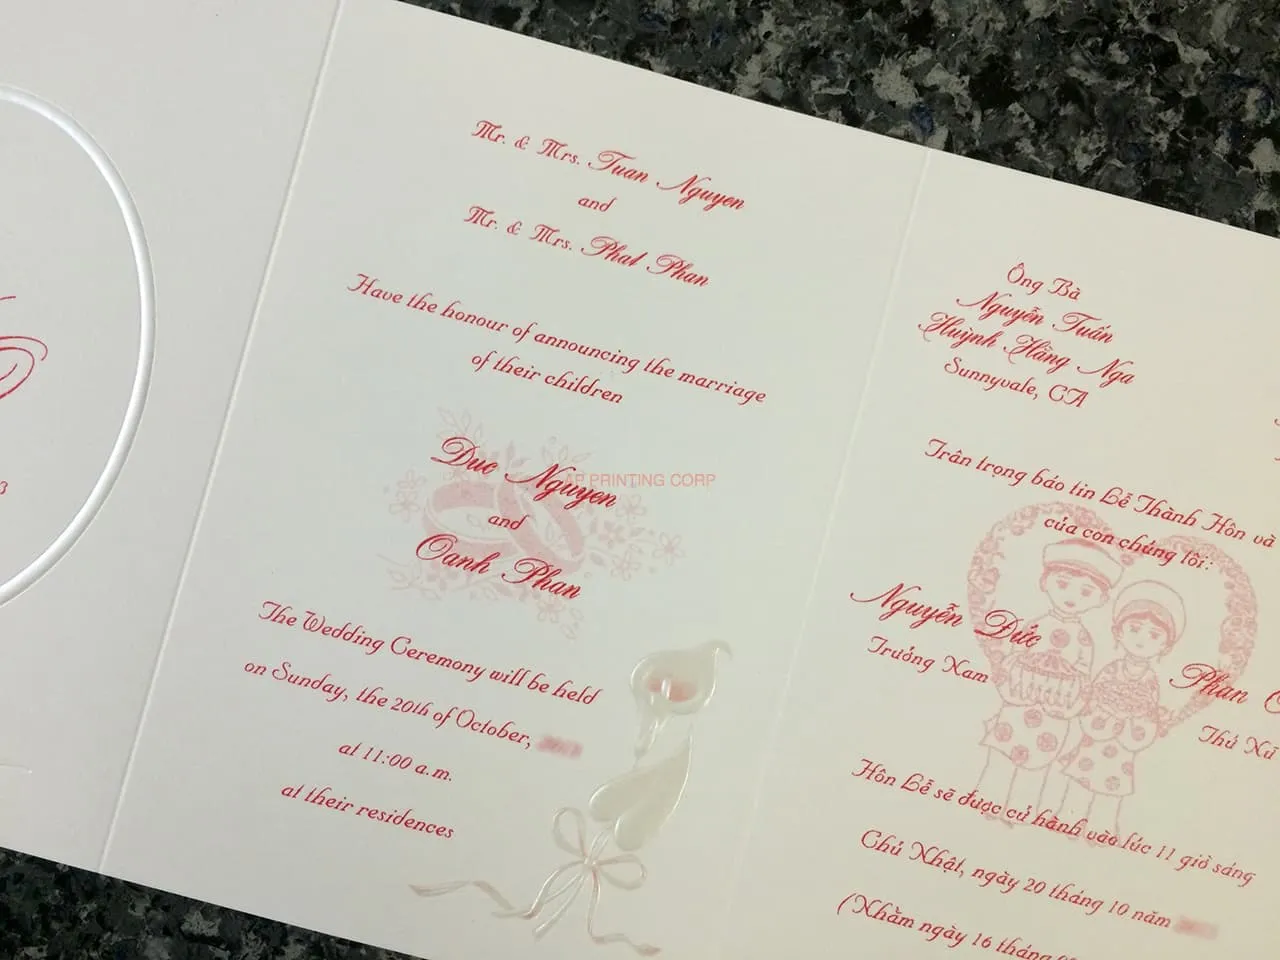 Mr. & Mrs. Tuan Nguyen
and
Mr. & Mrs. Phat Phan
Have the honour of announcing the marriage
of their children
Duc Nguyen
AP PRINTING CORP
and
Oanh Phan
The Wedding Ceremony will be held
on Sunday, the 20th of October,
at 11:00 a.m.
at their residences
Ông Bà
Nguyễn Tuấn
Huỳnh Hằng Nga
Sunnyvale, CA
Trân trọng báo tin Lễ Thành Hôn và
của con chúng tôi:
Nguyễn Đức
Trưởng Nam
Phan
Thứ Nữ
Hôn Lễ sẽ được cử hành vào lúc 11 giờ sáng
Chủ Nhật, ngày 20 tháng 10 năm
(Nhằm ngày 16 tháng